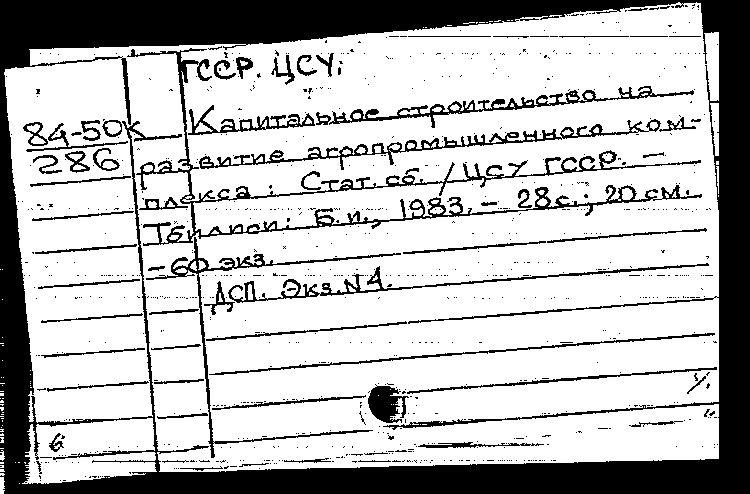 ГССР. ЦСУ.
84-50К Капитальное строительство на
286 развитие агропромышленного ком-
плекса : Стат. сб. / ЦСУ ГССР. —
Тбилиси : Б. и., 1983. — 28 с. ; 20 см.
— 60 экз.
ДСП. Экз. N 4.
6